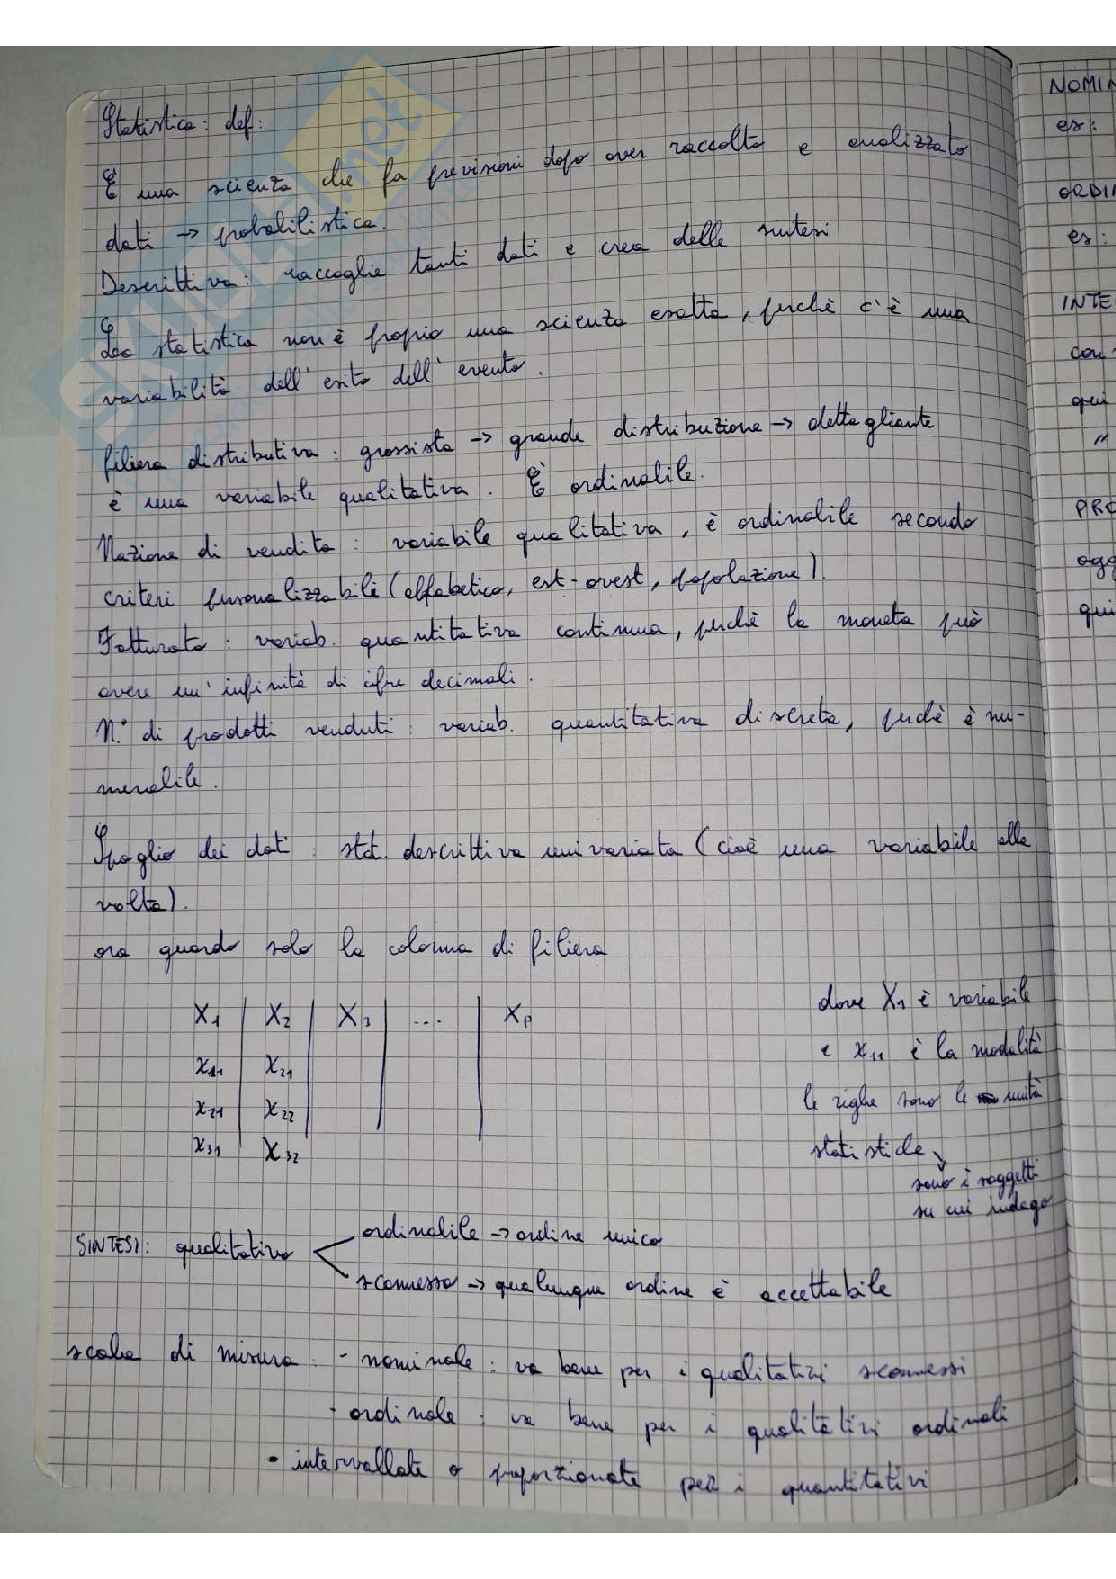 Statistica: def:
È una scienza che fa previsioni dopo aver raccolto e analizzato
dati → probabilistica.
Descrittiva: raccoglie tanti dati e crea delle sintesi
La statistica non è proprio una scienza esatta, perchè c'è una
variabilità dell'esito dell'evento.
filiera distributiva: grossista → grande distribuzione → dettagliante
è una variabile qualitativa. È ordinabile.
Nazione di vendita: variabile qualitativa, è ordinabile secondo
criteri personalizzabili (alfabetico, est-ovest, popolazione).
Fatturato: variab. quantitativa continua, perchè la moneta può
avere un'infinità di cifre decimali.
N.° di prodotti venduti: variab. quantitativa discreta, perchè è nu-
merabile.
Spoglio dei dati: stat. descrittiva univariata (cioè una variabile alla
volta).
ora guardo solo la colonna di filiera
X1 X2 X3 ... Xp
x11 x21
x21 x22
x31 x32
dove X1 è variabile
e x11 è la modalità
le righe sono le unità
statistiche
sono i soggetti
su cui indago
SINTESI: qualitativo
ordinabile → ordine unico
sconnesso → qualunque ordine è accettabile
scale di misura: - nominale: va bene per i qualitativi sconnessi
- ordinale: va bene per i qualitativi ordinali
- intervallate o proporzionate per i quantitativi
NOMIN
es:
ORDIN
es:
INTE
con
qui
"
PRO
ogg
qui